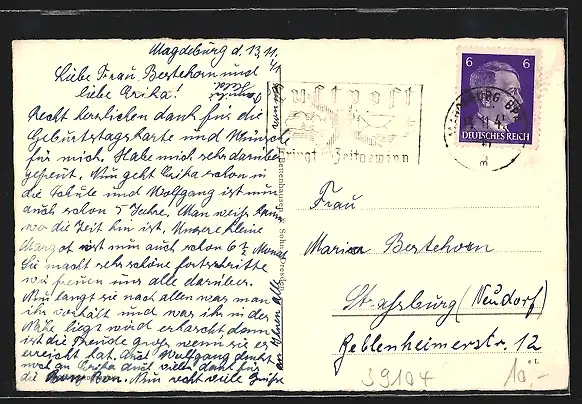 Magdeburg d. 13.11.41
Liebe Frau Bestehorn und
liebe Erika!
Recht herzlichen dank für die
Geburtstagskarte und Wünsche
für mich. Habe mich sehr darüber
gefreut. Nun geht Erika schon in
die Schule und Wolfgang ist nun
auch schon 5 Jahre. Man weiß kaum
wo die Zeit hin ist. Unsere kleine
Margot ist nun auch schon 6 ½ Monat
Sie macht sehr schöne fortschritte
wir freuen uns alle darüber.
Nun langt sie nach allen was man
ihr vorhält und was ihr in der
Nähe liegt wird erhascht dann
ist die Freude groß wenn sie es
erreicht hat. Auch Wolfgang denkt
noch an Erika und vielen dank für
die Bon. Nun recht viele Grüße
an Ihnen Alle
Luftpost
bringt Zeitgewinn
6 6
DEUTSCHES REICH
MAGDEBURG
Frau
Maria Bestehorn
Straßburg (Neudorf)
Reblenheimerstr. 12
39104
10,-